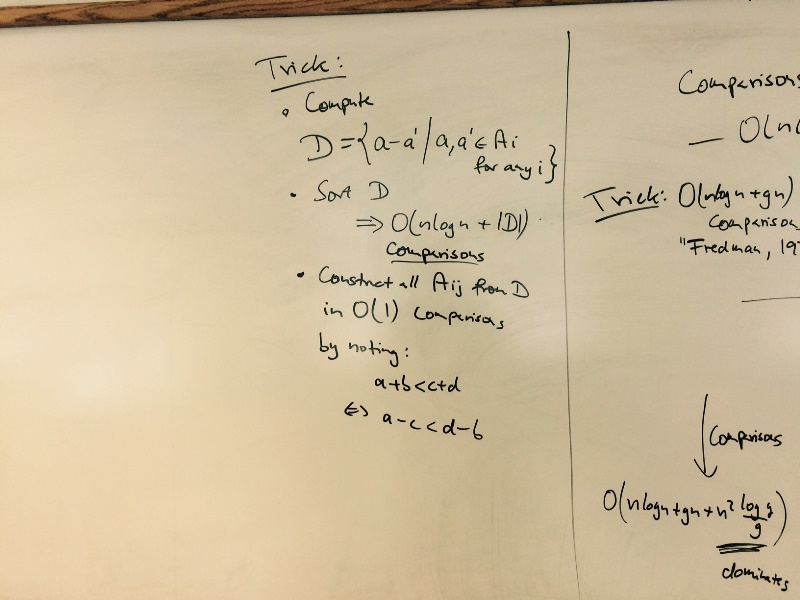 Trick:
• Compute
D = {a-a' | a,a' ∈ Ai
for any i}
• Sort D
⇒ O(nlogn + |D|)
Comparisons
• Construct all Aij from D
in O(1) comparisons
by noting:
a+b<c+d
⇔ a-c<d-b
Comparisons
— O(n
Trick: O(nlogn+gn)
Comparison
"Fredman, 19
Comparisons
O(nlogn+gn+n² log g/g)
dominates